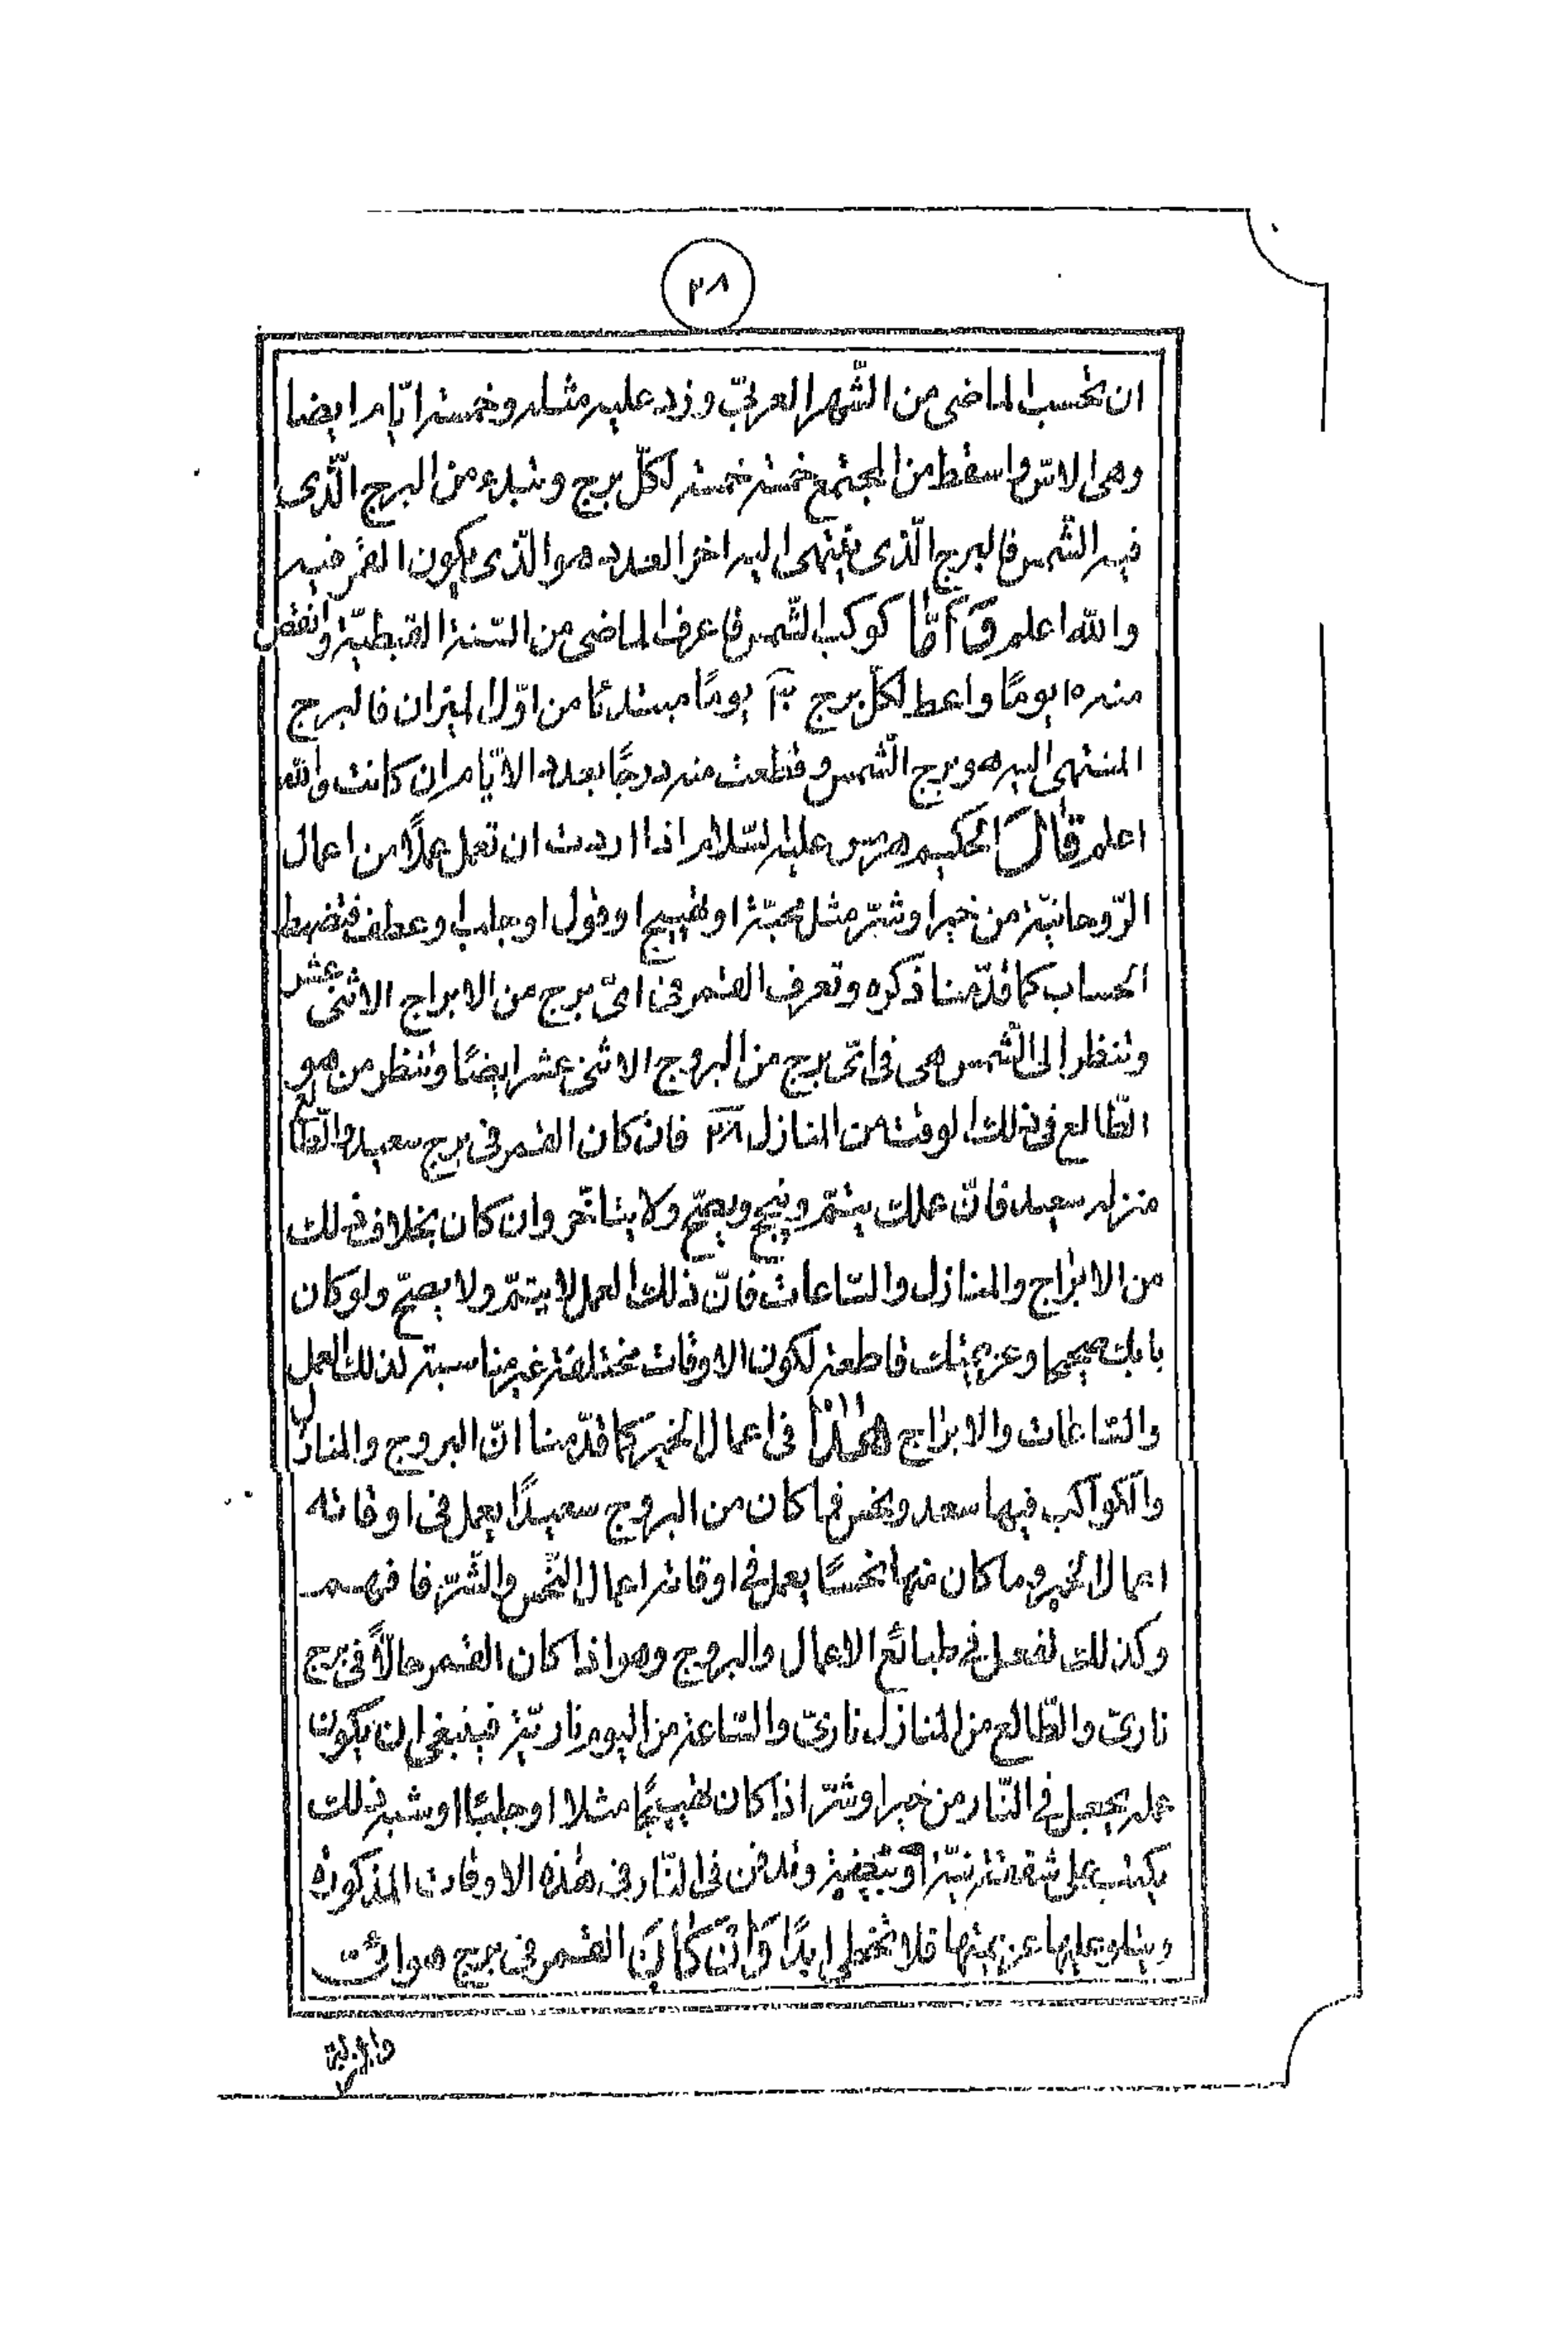 ٢٨
ان تحسب الماضى من الشّهر العربىّ وزد عليه مثله وخمسة ايّام ايضا
وهى الاسّ واسقط من المجتمع خمسة خمسة لكلّ برج وتبدء من البرج الّذى
فيه الشّمس فالبرج الّذى ينتهى اليه اخر العدد هو الّذى يكون القمر فيه
والله اعلم وَ أَمّا كوكب الشّمس فاعرف الماضى من السّنة القبطيّة وانقص
منه ١٥ يومًا واعط لكلّ برج ٣٠ يومًا مبتدئا من اوّل الميزان فالبرج
المنتهى اليه هو برج الشّمس وقطعت منه درجًا بعدد الايّام ان كانت والله
اعلم قالَ الحكيم هرمس عليه السّلام اذا اردت ان تعمل عملًا من اعمال
الرّوحانيّة من خير او شرّ مثل محبّة او تهييج او قبول او جلب او عطف فتضبط
الحساب كما قدّمنا ذكره وتعرف القمر فى اىّ برج من الابراج الاثنى عشر
وتنظر الى الشّمس هى فى اىّ برج من البروج الاثنى عشر ايضًا وتنظر من هو
الطّالع فى ذلك الوقت من المنازل ٢٨ فان كان القمر فى برج سعيد والطّالع
منزله سعيد فانّ عملك يتمّ وينجح ويصحّ ولا يتأخّر وان كان بخلاف ذلك
من الابراج والمنازل والسّاعات فانّ ذلك العمل لا يتمّ ولا يصحّ ولو كان
بابك صحيحا وعزيمتك قاطعة لكون الاوقات مختلفة غير مناسبة لذلك العمل
والسّاعات والابراج هٰكذا فى اعمال الخير كما قدّمنا انّ البروج والمنازل
والكواكب فيها سعد ونحس فما كان من البروج سعيدًا يعمل فى اوقاته
اعمال الخير وما كان منها نحسًا يعمل فى اوقاته اعمال النّحس والشّرّ فافهم
وكذلك تفعل فى طبائع الاعمال والبروج وهو اذا كان القمر حالًّا فى برج
نارىّ والطّالع من المنازل نارىّ والسّاعة من اليوم ناريّة فينبغى ان يكون
عمله يجعل فى النّار من خير او شرّ اذا كان تهييجًا مثلا او جلبًا او شبه ذلك
يكتب على شقفة نيّة وتدفن فى النّار فى هذه الاوقات المذكورة
ويتلو عليها عزيمتها فلا تخطى ابدًا وَانْ كانَ القمر فى برج هوائى
والمنزلة